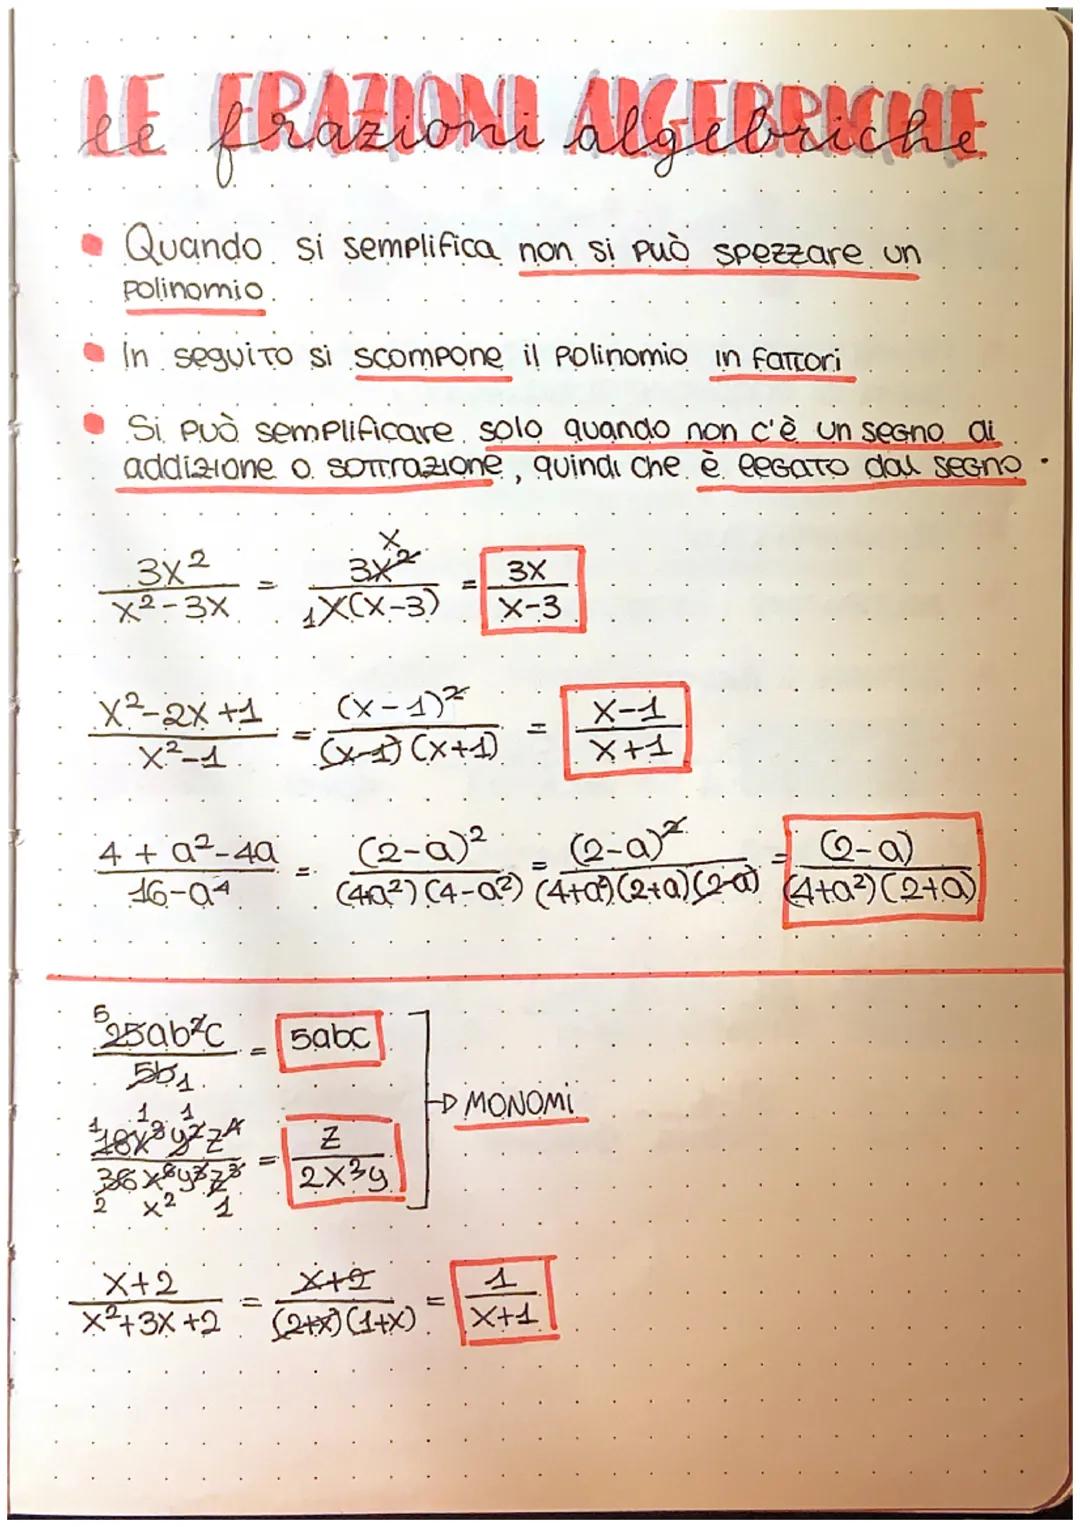 LE FRAZIONI ALGEBRICHE
le frazioni algebriche
Quando si semplifica non si può spezzare un
polinomio.
In seguito si scompone il polinomio in fattori
Si può semplificare solo quando non c'è un segno di
addizione o sottrazione, quindi che è legato dal segno.
3x²/(x²-3x) = 3x²/(x(x-3)) = 3x/(x-3)
(x²-2x+1)/(x²-1) = (x-1)²/((x-1)(x+1)) = (x-1)/(x+1)
(4+a²-4a)/(16-a⁴) = (2-a)²/((4+a²)(4-a²)) = (2-a)²/((4+a²)(2+a)(2-a)) = (2-a)/((4+a²)(2+a))
25ab²c/5b = 5abc
→ MONOMI
z/(2x³y)
(x+2)/(x²+3x+2) = (x+2)/((2+x)(1+x)) = 1/(x+1)